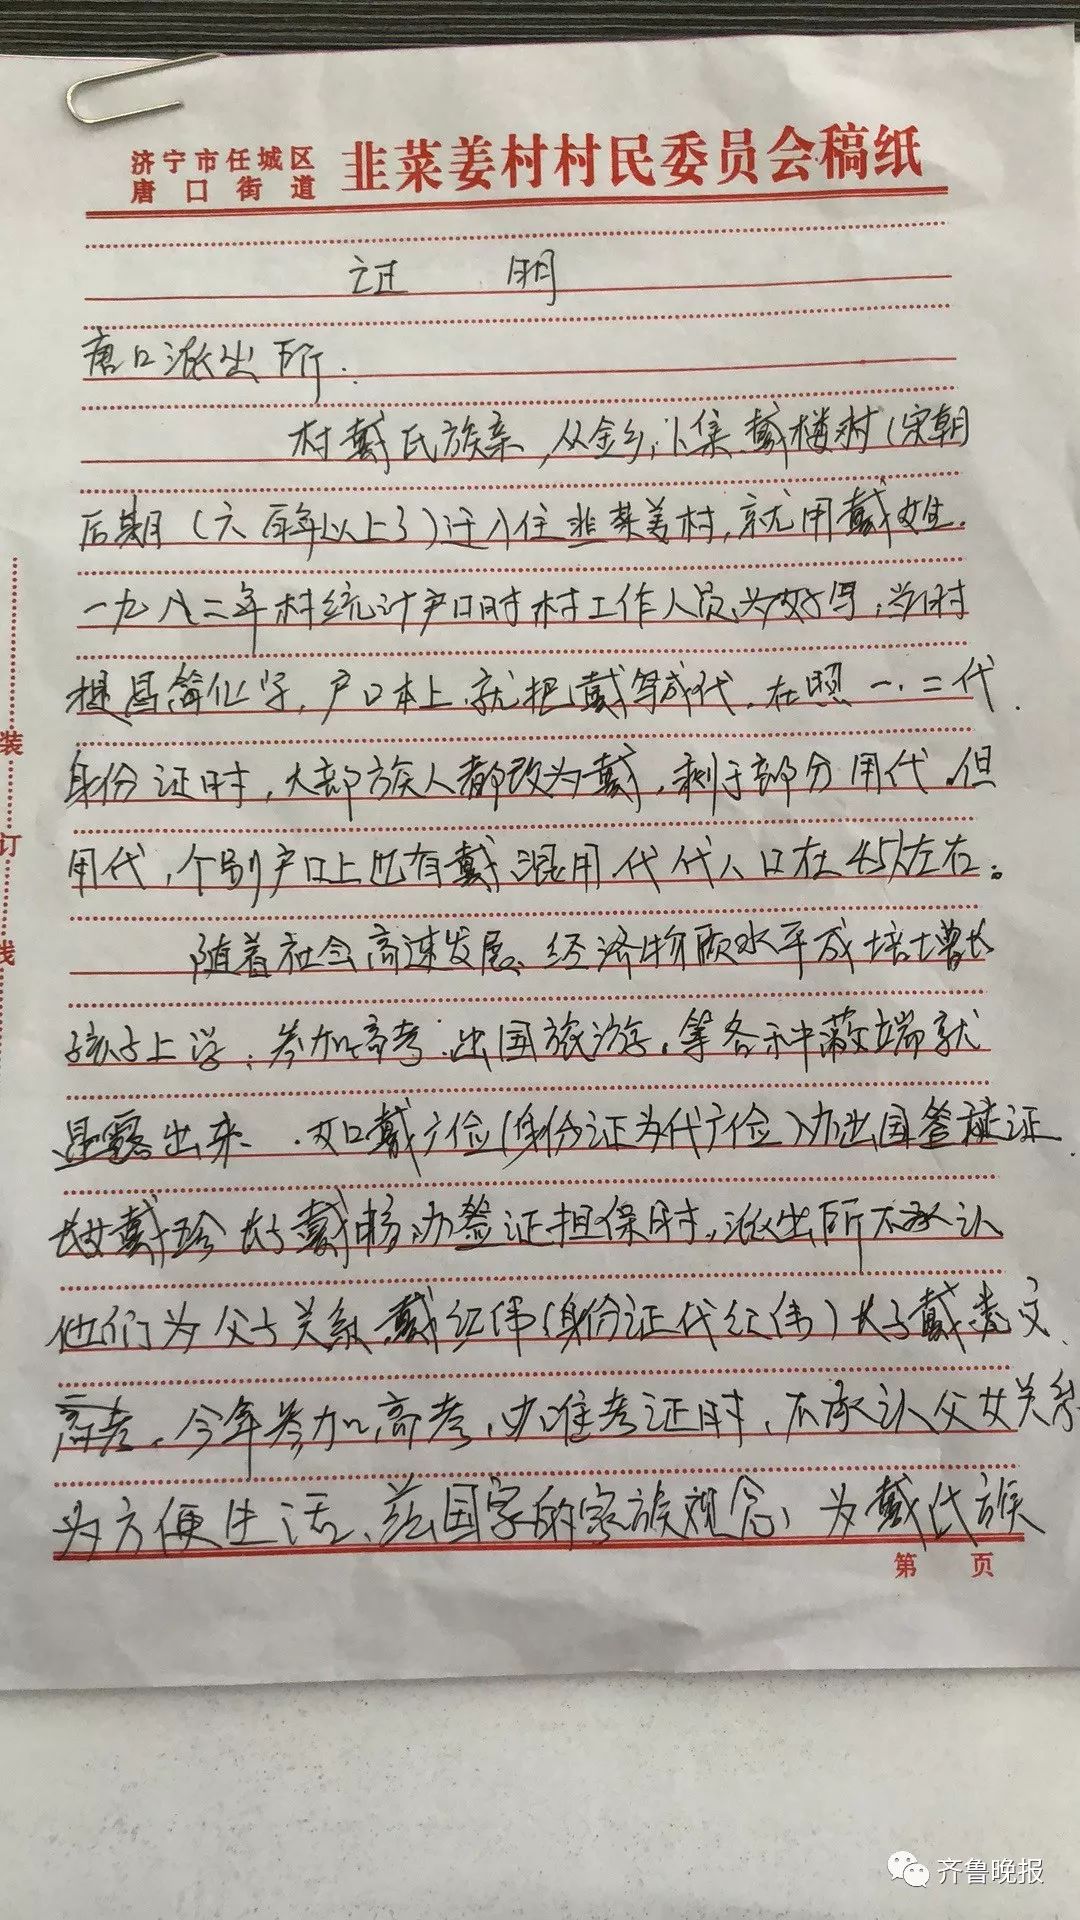 济宁市任城区
唐口街道
韭菜姜村村民委员会稿纸
证 明
唐口派出所:
村戴氏族亲,从金乡,卜集.戴楼村(宋朝
后期(六百年以上了)迁入住韭菜姜村,就用戴姓.
一九八二年村统计户口时村工作人员为好写,当时
提昌简化字,户口本上.就把戴写成代.在照一.二代.
身份证时,大部族人都改为戴,剩于部分用代.但
用代,个别户口上也有戴.混用.代代人口在45人左右。
随着社会高速发展、经济物质水平成培增长
孩子上学.参加高考.出国旅游.等各种蔽端就
显露出来.如戴广俭(身份证为代广俭)办出国签证
长女戴珍长子戴 办签证担保时,派出所不承认
他们为父子关系.戴红伟(身份证代红伟)长子戴 文
高考.今年参加高考,办准考证时,不承认父女关系
为方便生活、 国家的家族观念、为戴氏族
第 页
装
订
线
齐鲁晚报